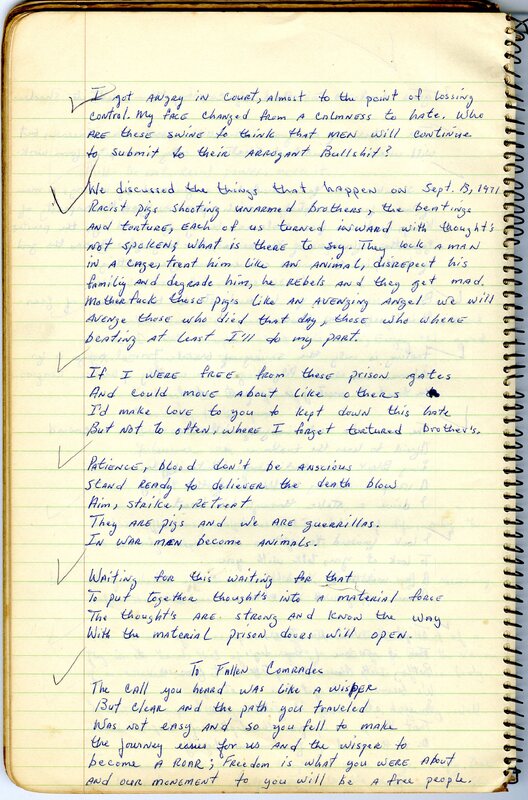 I got angry in court, almost to the point of lossing
control. My face changed from a calmness to hate. Who
are these swine to think that men will continue
to submit to their arrogant Bullshit?
We discussed the things that happen on Sept. 13, 1971
Racist pigs shooting unarmed brothers, the beatings
and torture, each of us turned inward with thought's
not spoken; what is there to say. They lock a man
in a cage, treat him like an animal, disrepect his
familiy and degrade him, he rebels and they get mad.
Motherfuck those pigs like an avenging angel we will
avenge those who died that day, those who where
beating at least I'll do my part.
If I were free from these prison gates
And could move about like others
I'd make love to you to kept down this hate
But not to often, where I forget tortured brother's.
Patience, blood don't be anscious
stand ready to deliever the death blow
Aim, strike, retreat
They are pigs and we are guerrillas.
In war men become animals.
Waiting for this waiting for that
To put together thought's into a material force
The thought's are strong and know the way
With the material prison doors will open.
To Fallen Comrades
The call you heard was like a wisper
But clear and the path you traveled
Was not easy and so you fell to make
the journey for us and the wisper to
become a roar; Freedom is what you were about
and our monement to you will be a free people.